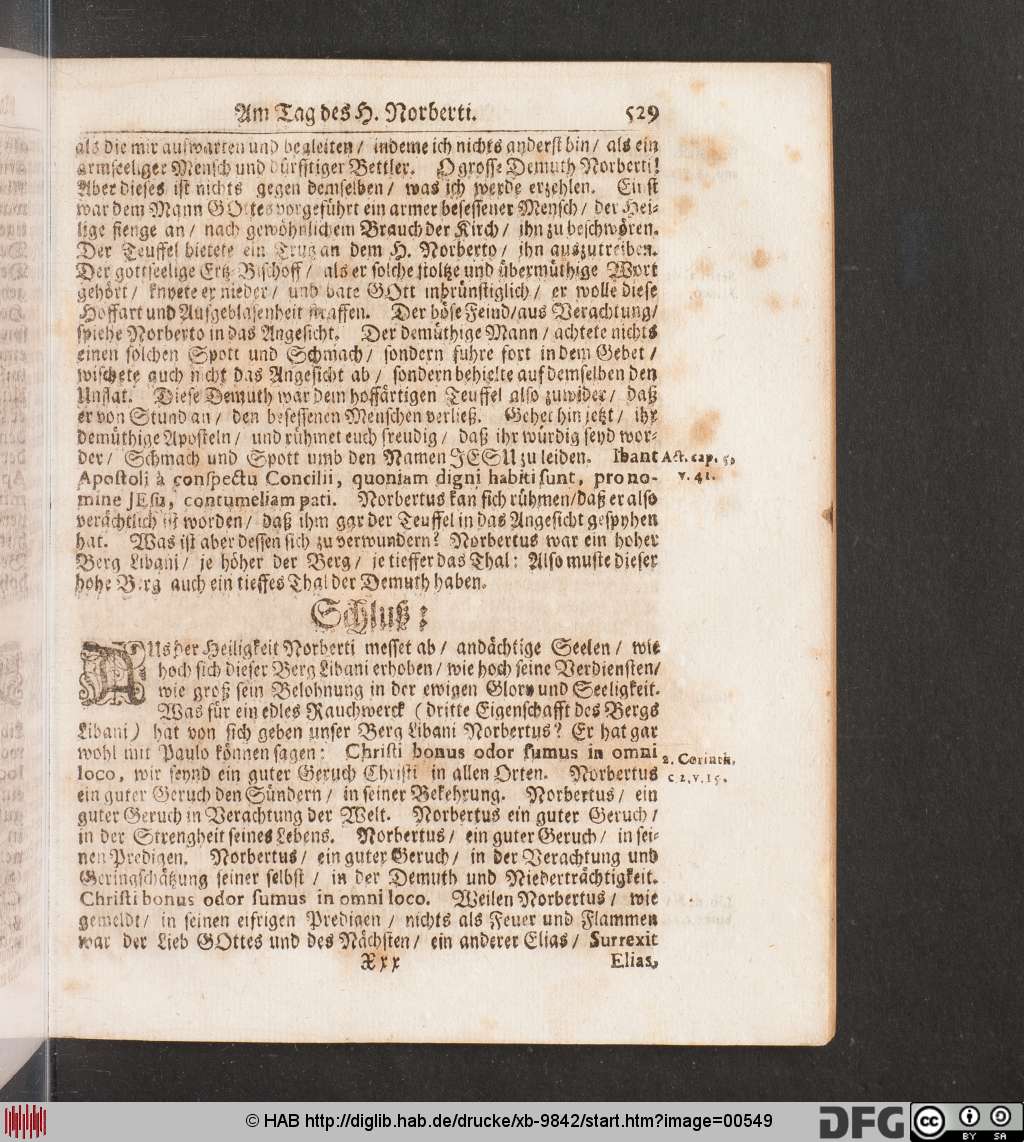 Am Tag des H. Norberti. 529
als die mir aufwarten und begleiten / indeme ich nichts anderst bin / als ein
armseeliger Mensch und dürfftiger Bettler. O grosse Demuth Norberti!
Aber dieses ist nichts gegen demselben / was ich werde erzehlen. Einst
war dem Mann GOttes vorgeführt ein armer besessener Mensch / der Hei-
lige fienge an / nach gewöhnlichem Brauch der Kirch / ihn zu beschwören.
Der Teuffel bietete ein Trutz an dem H. Norberto / ihn auszutreiben.
Der gottseelige Ertz-Bischoff / als er solche stoltze und übermüthige Wort
gehört / knyete er nieder / und bate GOtt inbrünstiglich / er wolle diese
Hoffart und Aufgeblasenheit straffen. Der böse Feind / aus Verachtung /
spiehe Norberto in das Angesicht. Der demüthige Mann / achtete nichts
einen solchen Spott und Schmach / sondern fuhre fort in dem Gebet /
wischete auch nicht das Angesicht ab / sondern behielte auf demselben den
Unflat. Diese Demuth war dem hoffärtigen Teuffel also zuwider / daß
er von Stund an / den besessenen Menschen verließ. Gehet hin jetzt / ihr
demüthige Aposteln / und rühmet euch freudig / daß ihr würdig seyd wor-
der / Schmach und Spott umb den Namen JESU zu leiden. Ibant
Act. cap. 5.
v. 41.
Apostoli à conspectu Concilii, quoniam digni habiti sunt, pro no-
mine JEsu, contumeliam pati. Norbertus kan sich rühmen / daß er also
verächtlich ist worden / daß ihm gar der Teuffel in das Angesicht gespyhen
hat. Was ist aber dessen sich zu verwundern? Norbertus war ein hoher
Berg Libani / je höher der Berg / je tieffer das Thal: Also muste dieser
hohe Berg auch ein tieffes Thal der Demuth haben.
Schluß:
AUs der Heiligkeit Norberti messet ab / andächtige Seelen / wie
hoch sich dieser Berg Libani erhoben / wie hoch seine Verdiensten /
wie groß sein Belohnung in der ewigen Glory und Seeligkeit.
Was für ein edles Rauchwerck ( dritte Eigenschafft des Bergs
Libani ) hat von sich geben unser Berg Libani Norbertus? Er hat gar
wohl mit Paulo können sagen: Christi bonus odor sumus in omni
2. Corinth.
c 2, v. 15.
loco, wir seynd ein guter Geruch Christi in allen Orten. Norbertus
ein guter Geruch den Sündern / in seiner Bekehrung. Norbertus / ein
guter Geruch in Verachtung der Welt. Norbertus ein guter Geruch /
in der Strengheit seines Lebens. Norbertus / ein guter Geruch / in sei-
nen Predigen. Norbertus / ein guter Geruch / in der Verachtung und
Geringschätzung seiner selbst / in der Demuth und Niederträchtigkeit.
Christi bonus odor sumus in omni loco. Weilen Norbertus / wie
gemeldt / in seinen eifrigen Predigen / nichts als Feuer und Flammen
war der Lieb GOttes und des Nächsten / ein anderer Elias / Surrexit
Xxx Elias,
© HAB http://diglib.hab.de/drucke/xb-9842/start.htm?image=00549
DFG cc BY SA